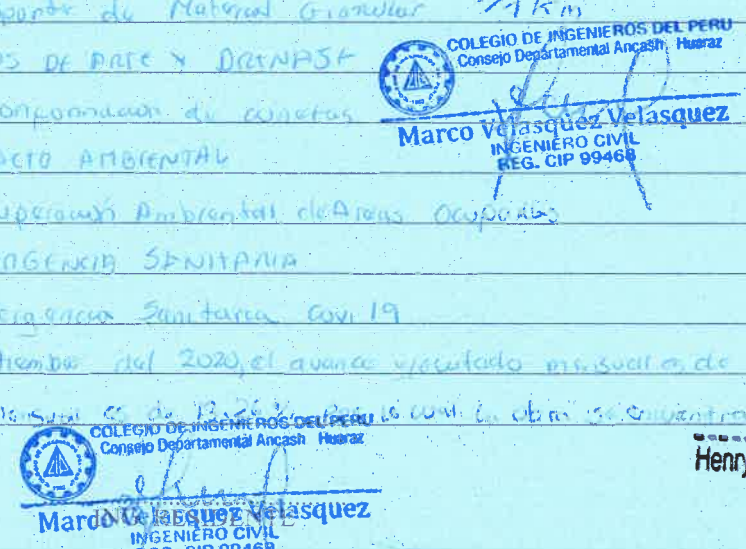 de Material Granular 71Km
COLEGIO DE INGENIEROS DEL PERU
Consejo Departamental Ancash Huaraz
DE ARTE Y DRENAJE
de cunetas
Marco Velasquez Velasquez
INGENIERO CIVIL
REG. CIP 99468
AMBIENTAL
Ambiental de Areas Ocupadas
SANITARIA
Sanitaria Covi 19
del 2020, el avance ejecutado mensual es de
es de la obra se encuentra
COLEGIO DE INGENIEROS DEL PERU
Consejo Departamental Ancash Huaraz
Henry
Marco Velasquez Velasquez
ING. RESIDENTE
INGENIERO CIVIL
REG. CIP 99468